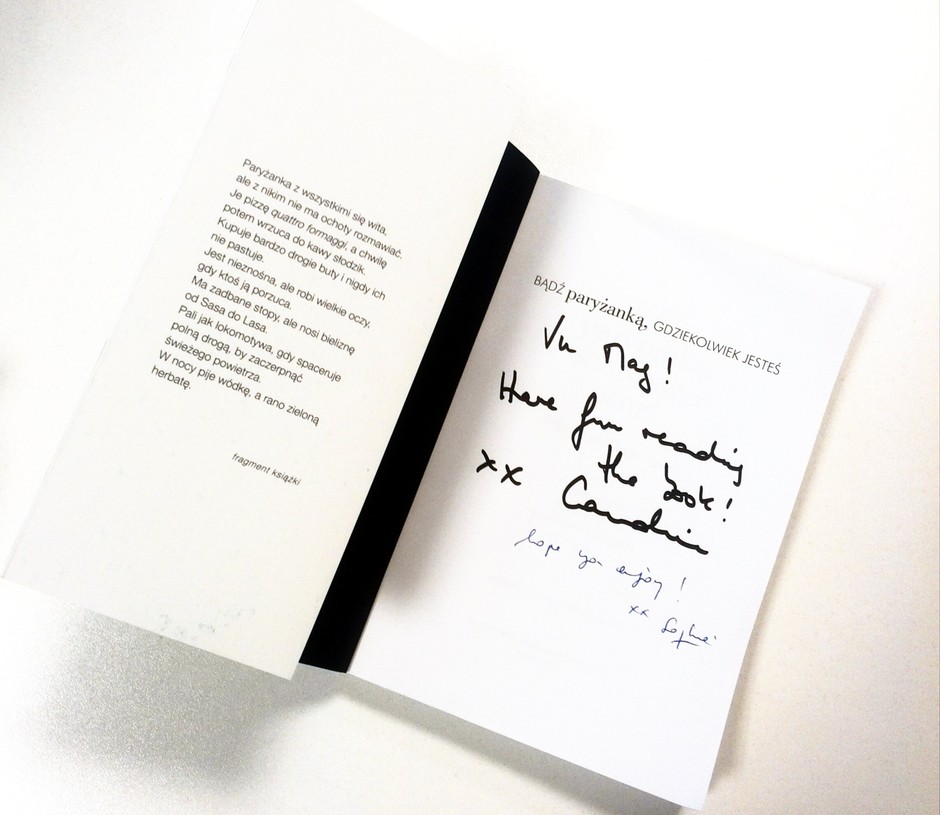 Paryżanka z wszystkimi się wita,
ale z nikim nie ma ochoty rozmawiać.
Je pizzę quattro formaggi, a chwilę
potem wrzuca do kawy słodzik.
Kupuje bardzo drogie buty i nigdy ich
nie pastuje.
Jest nieznośna, ale robi wielkie oczy,
gdy ktoś ją porzuca.
Ma zadbane stopy, ale nosi bieliznę
od Sasa do Lasa.
Pali jak lokomotywa, gdy spaceruje
polną drogą, by zaczerpnąć
świeżego powietrza.
W nocy pije wódkę, a rano zieloną
herbatę.
fragment książki
BĄDŹ paryżanką, GDZIEKOLWIEK JESTEŚ
Mag!
Have fun reading
the book!
xx
hope you enjoy!
xx Sophie